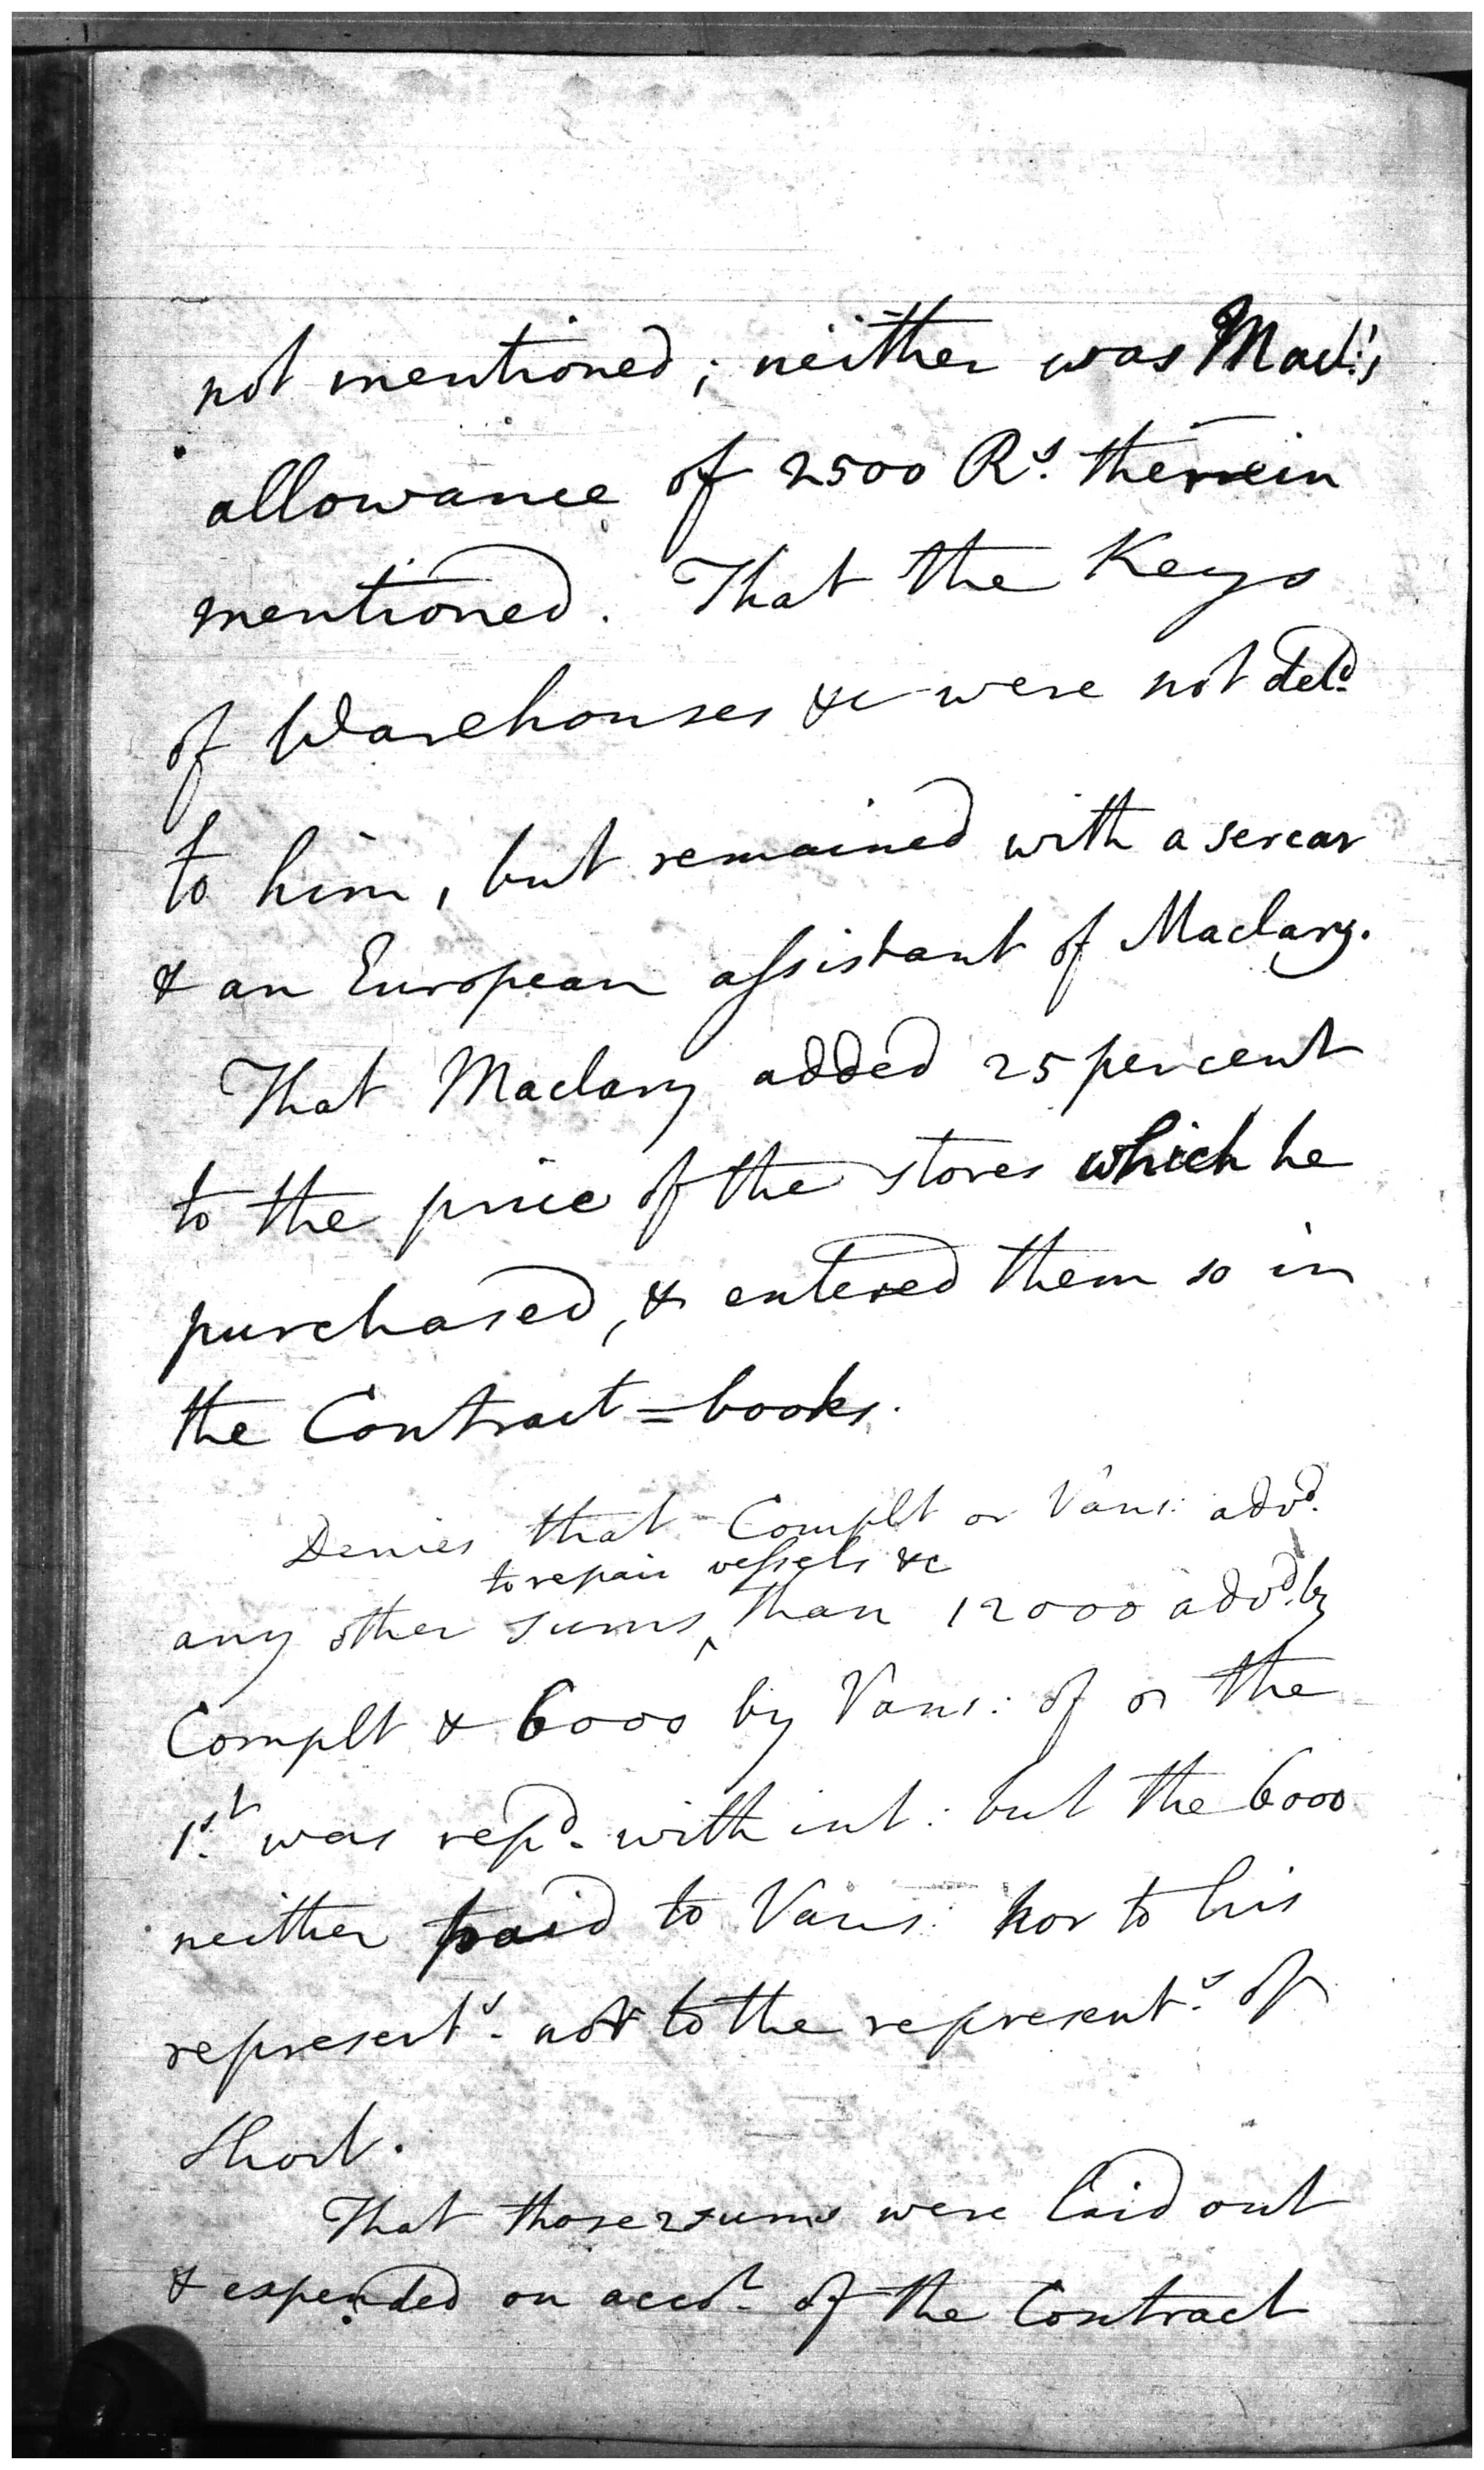 not mentioned; neither was Macl:'s
allowance of 2500 Rs. therein
mentioned. That the Keys
of Warehouses &c were not deld.
to him, but remained with a sercar
& an European assistant of Maclary.
That Maclary added 25 percent
to the price of the stores which he
purchased, & entered them so in
the Contract=books.
Denies that Complt or Vans: advd.
to repair vessels &c
any other sums ‸ than 12000 advd. by
Complt & 6000 by Vans: of the
1st. was repd. with int: but the 6000
neither paid to Vans: nor to his
represents. nor to the represents. of
Short.
That those 2 sums were laid out
& expended on accot. of the Contract